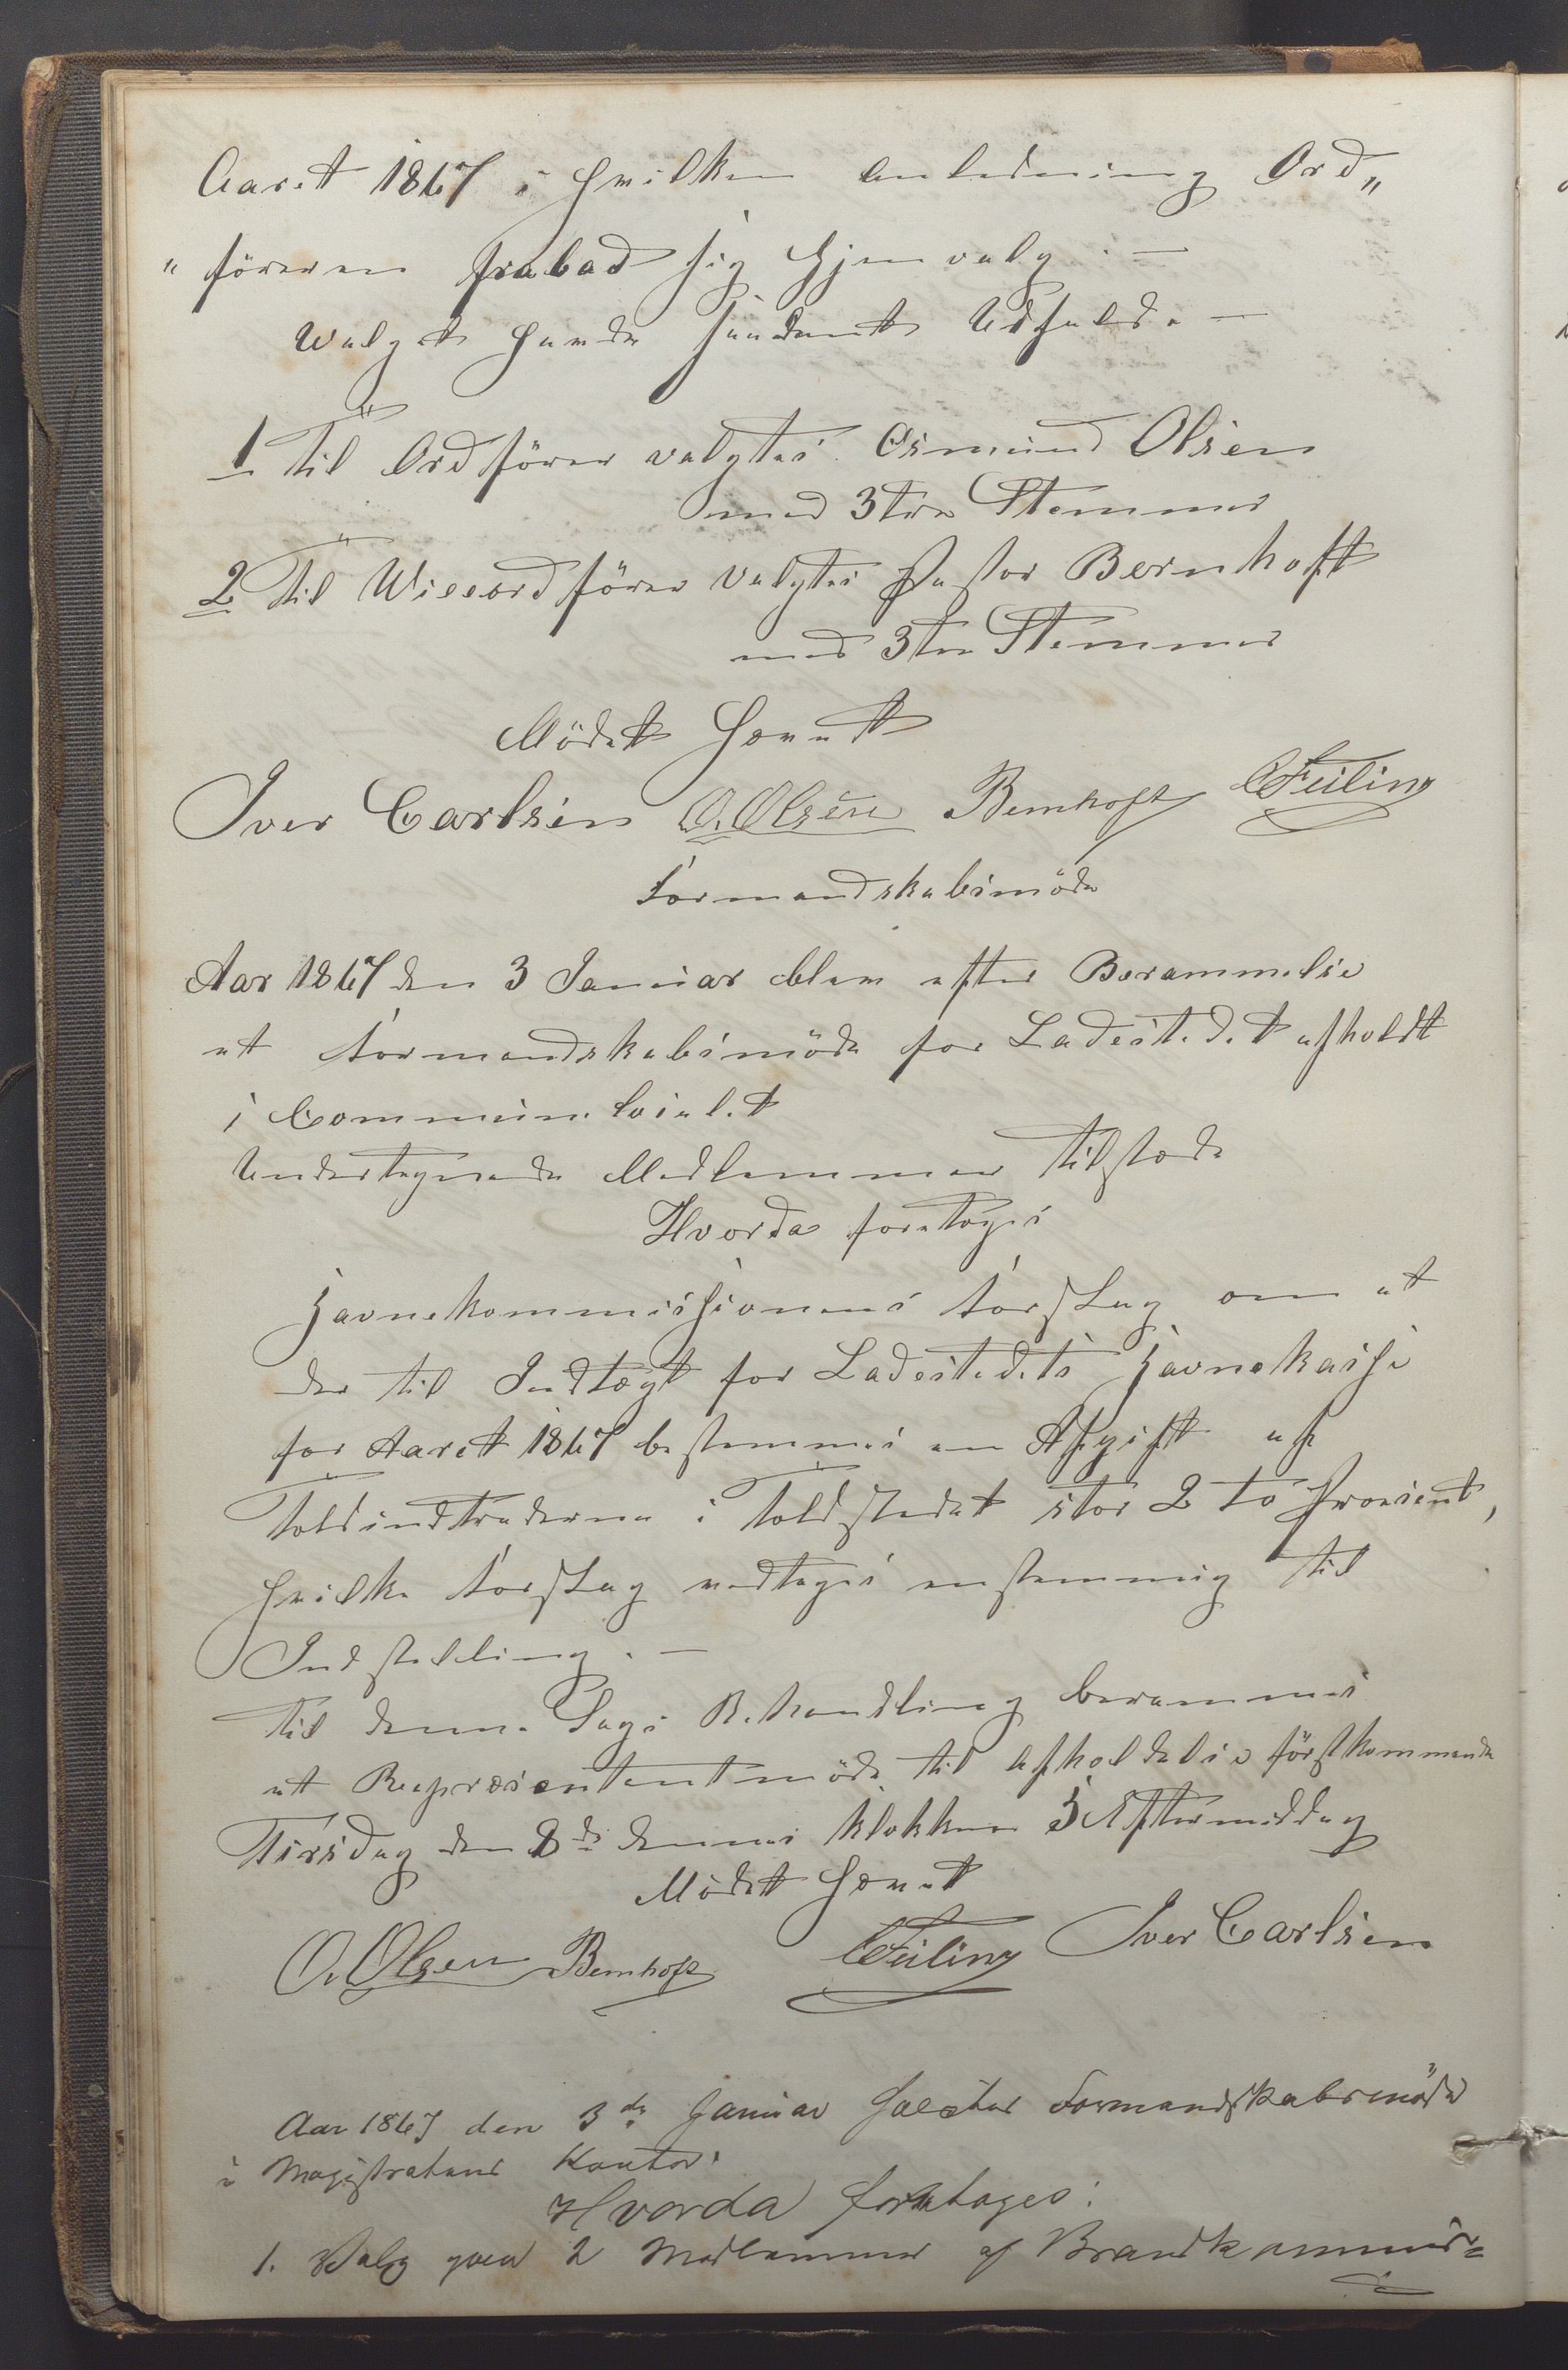 Aaret 1867 i hvilken Anledning Ord„
„föreren frabad sig Gjenvalg. —
Valget havde saadant Udfald. —
1 Til Ordförer valgtes Osmund Olsen
med 3tre Stemmer
2 Til Viceordförer valgtes Pastor Bernhoft
med 3tre Stemmer
Mödet hævet
Iver Carlsen O. Olsen Bernhoft CFeiling
Formandskabsmöde
Aar 1867 den 3 Januar blev efter Berammelse
et Formandskabsmöde for Ladestedet afholdt
i Communelocalet
Undertegnede Medlemmer tilstæde
Hvorda foretoges
Havnekommissionens Forslag om at
der til Indtægt for Ladestedets Havnekasse
for Aaret 1867 bestemmes en Afgift af
Toldindtraderne i Toldstedet stor 2 to Procent,
hvilke Forslag vedtoges enstemmig til
Indstilling. —
Til denne Sags Behandling berammes
et Repræsentantmöde til Afholdelse förstkommende
Tirsdag den 8de dennes Klokken 5 Eftermiddag
Mödet hævet
O. Olsen Bernhoft CFeiling Iver Carlsen
Aar 1867 den 3de Januar holdtes Formandskabsmöde
i Magistratens Kontor.
Hvorda foretoges:
1. Valg paa 2 Medlemmer af Brandkommis„